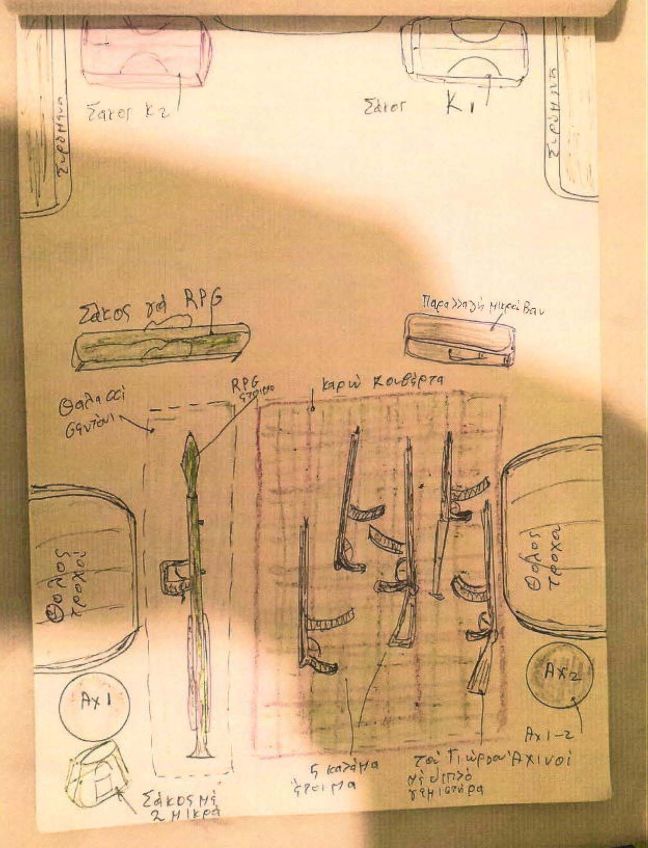 Σάκος Κ2
Σάκος Κ1
Συρόμενα
Συρόμενα
Σάκος γιά RPG
Παραλλαγή μικρό Βαν
RPG
έτοιμο
καρώ κουβέρτα
Θαλασσί
σεντόνι
Θόλος
τροχού
Θόλος
τροχού
Αχ1
Αχ2
Αχ1-2
Σάκος μέ
2 μικρά
5 καλάμα
έτοιμα
τού Αχινοί
μέ διπλό
γεμιστήρα